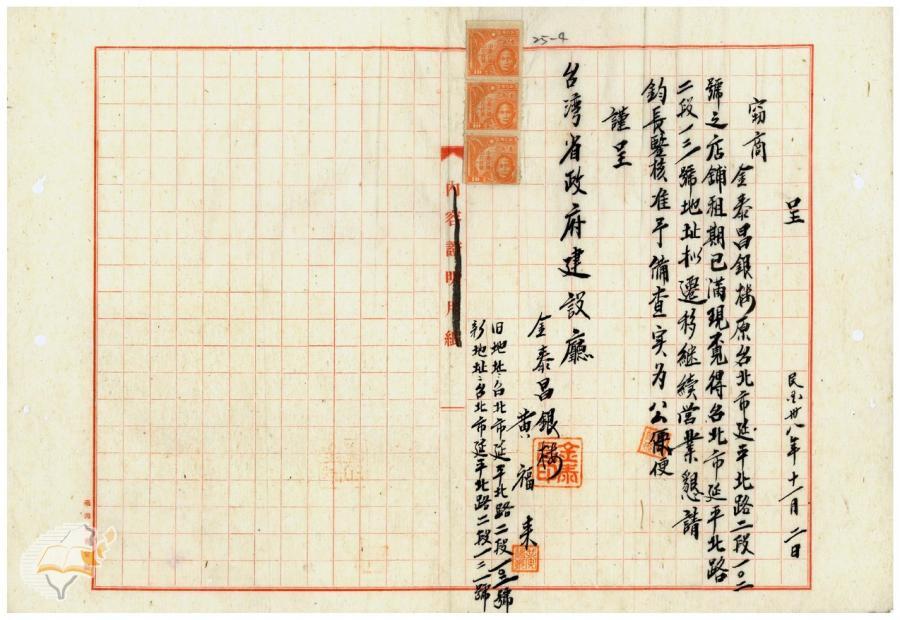 25-4
呈
民國卅八年十一月二日
竊商
金泰昌銀樓原台北市延平北路二段一〇二
號之店舖租期已滿現覓得台北市延平北路
二段一三一號地址拟遷移継續営業懇請
鈞長鑒核准予備查实为公便
謹呈
台湾省政府建設廳
金泰昌銀樓
黄福来
旧地址：台北市延平北路二段一〇二號
新地址：台北市延平北路二段一三一號
內容證明用紙